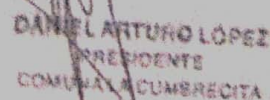 DANIEL ARTURO LÓPEZ
PRESIDENTE
COMUNA LA CUMBRECITA